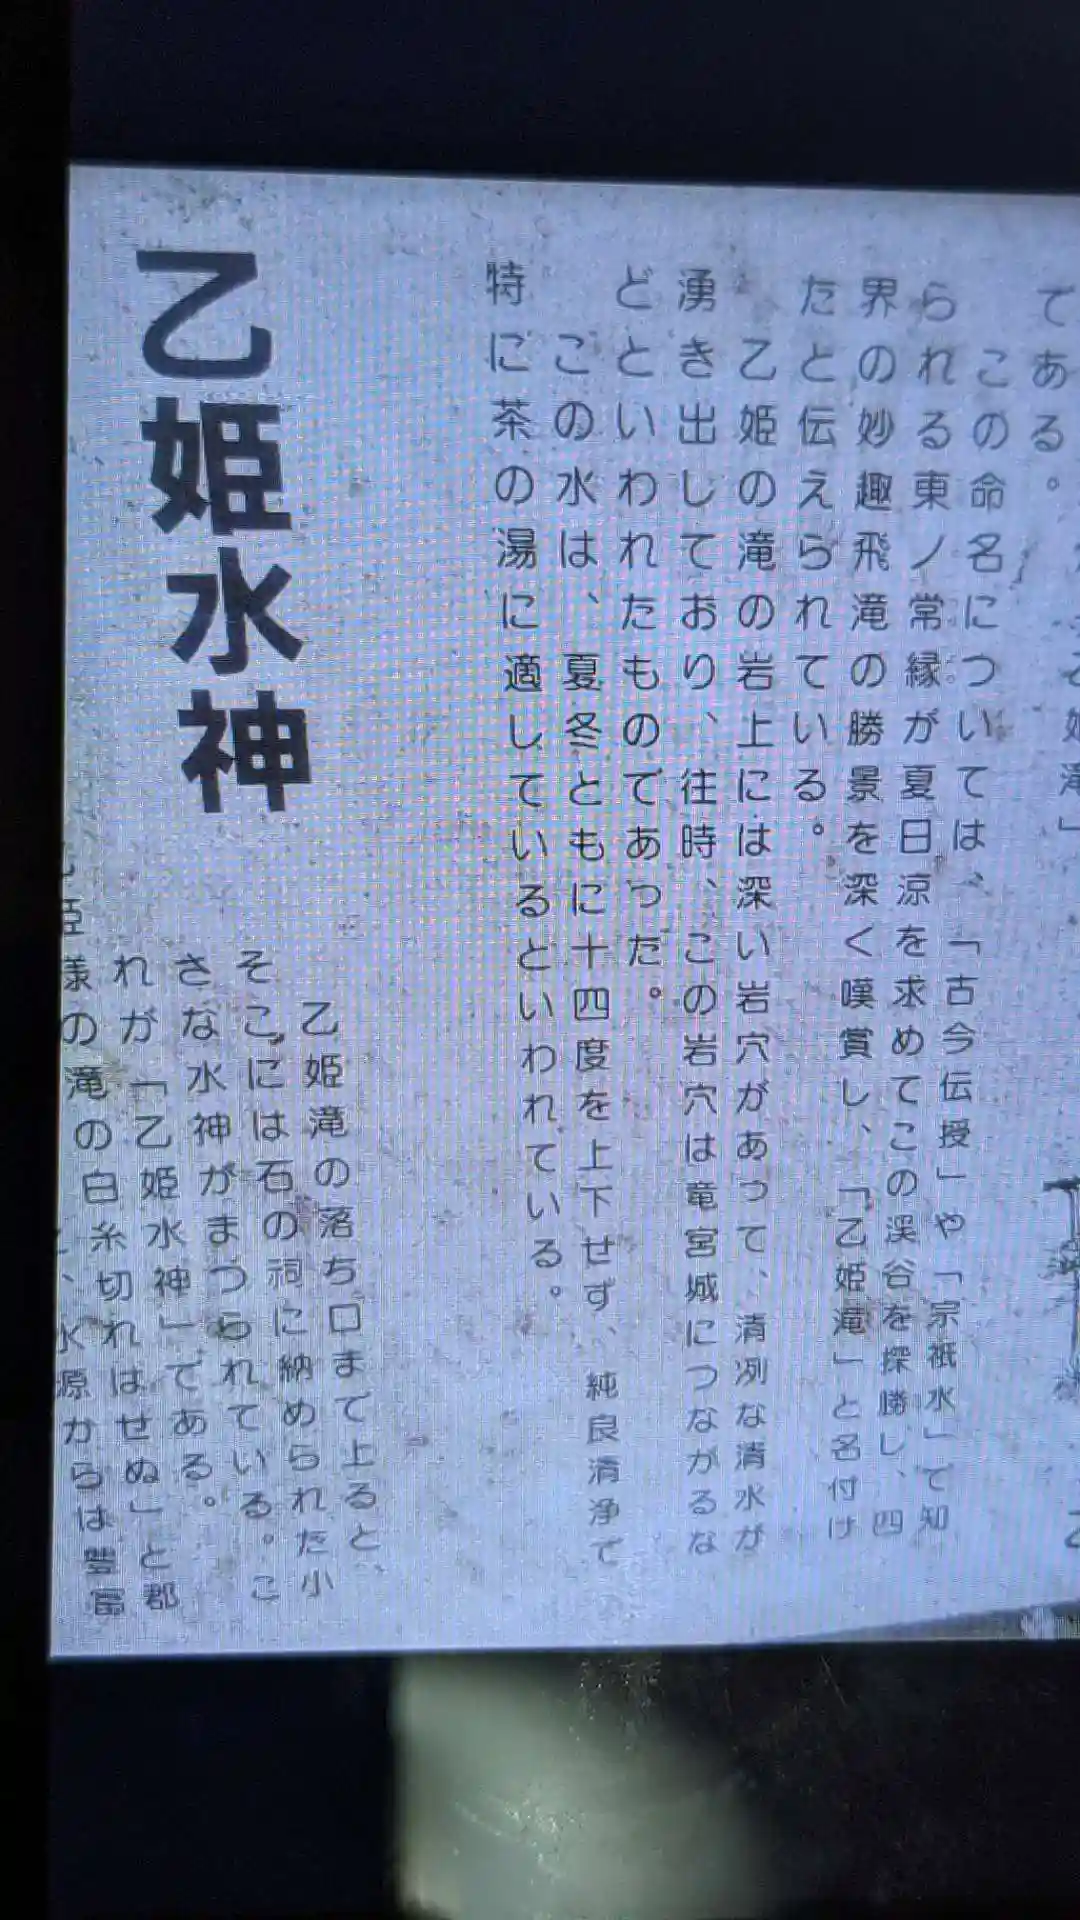 乙姫滝」
である。
この命名については、「古今伝授」や「宗祇水」で知
られる東ノ常縁が夏日涼を求めてこの渓谷を探勝し、四
界の妙趣飛滝の勝景を深く嘆賞し、「乙姫滝」と名付け
たと伝えられている。
乙姫の滝の岩上には深い岩穴があって、清冽な清水が
湧き出しており、往時、この岩穴は竜宮城につながるな
どといわれたものであった。
この水は、夏冬ともに十四度を上下せず、純良清浄で
特に茶の湯に適しているといわれている。
乙姫水神
乙姫滝の落ち口まで上ると、
そこには石の祠に納められた小
さな水神がまつられている。こ
れが「乙姫水神」である。
様の滝の白糸切れはせぬ」と郡
水源からは豊富